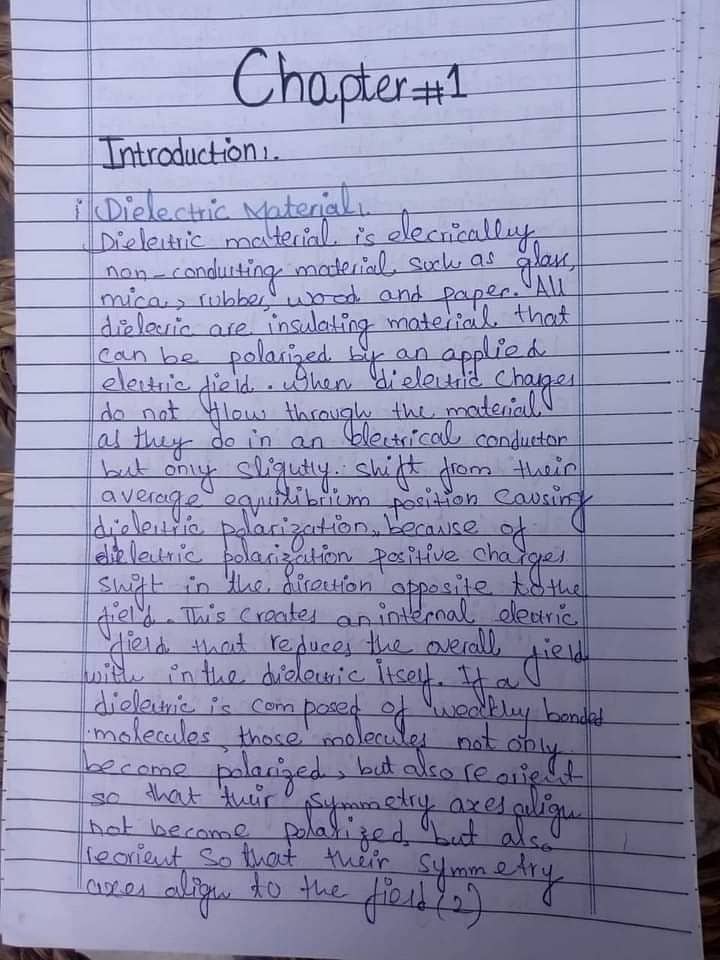 Chapter #1
Introduction:.
i Dielectric Material:
Dielectric material is elecrically
non-conducting material such as glass,
mica, rubber, wood and paper. All
dielecric are insulating material that
can be polarized by an applied
electric field. when dielectric Charges
do not flow through the material
as they do in an electrical conductor
but only sligutly shift from their
average equilibrium position causing
dielectric polarization, because of
dielectric polarization positive charges
shift in the direction opposite to the
field. This creates an internal electric
field that reduces the overall field
with in the dielectric itself. If a
dielectric is composed of weakly bonded
molecules, those molecules not only
become polarized, but also reorient
so that their symmetry axes align
not become polarized, but also
reorient so that their symmetry
axes align to the field (2)